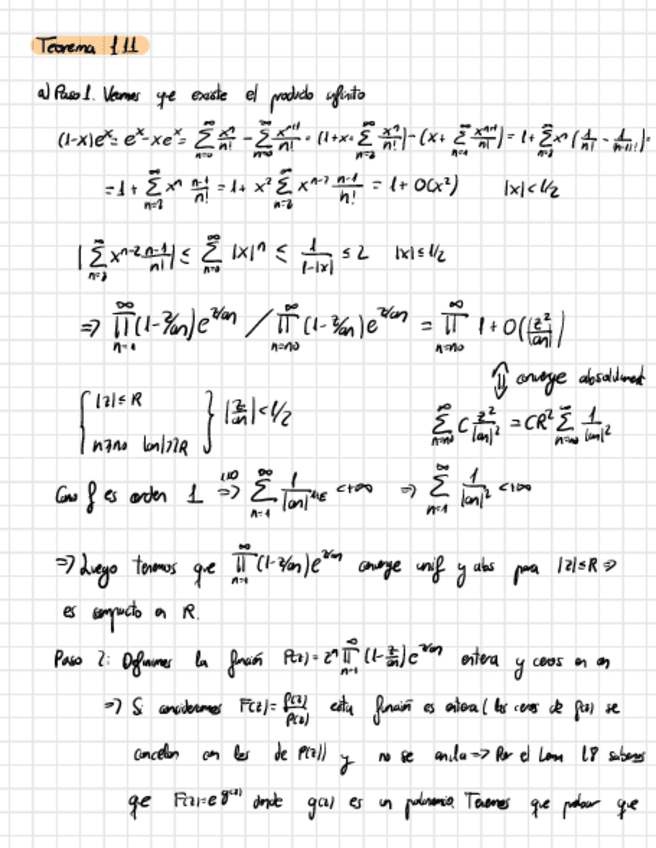 Teorema 1.11
a) Paso 1. Veamos que existe el producto infinito
(1-x)e^x = e^x - xe^x = Σ_{n=0}^∞ x^n/n! - Σ_{n=0}^∞ x^{n+1}/n! = (1+x+Σ_{n=2}^∞ x^n/n!) - (x+Σ_{n=1}^∞ x^{n+1}/n!) = 1+Σ_{n=2}^∞ x^n (1/n! - 1/(n-1)!) =
= 1 + Σ_{n=2}^∞ x^n (n-1)/n! = 1 + x^2 Σ_{n=2}^∞ x^{n-2} (n-1)/n! = 1 + O(x^2) |x|<1/2
|Σ_{n=2}^∞ x^{n-2} (n-1)/n!| ≤ Σ_{n=0}^∞ |x|^n ≤ 1/(1-|x|) ≤ 2 |x|≤1/2
⇒ ∏_{n=1}^∞ (1-z/an) e^{z/an} / ∏_{n=n0}^∞ (1-z/an) e^{z/an} = ∏_{n=n0}^∞ 1+O(|z^2/an|)
⇕ converge absolutament
{ |z|≤R
n≥n0 |an|>2R } |z/an|<1/2
Σ_{n=n0}^∞ C z^2/|an|^2 = CR^2 Σ_{n=n0}^∞ 1/|an|^2
Como f es orden 1 ⇒^{1.10} Σ_{n=1}^∞ 1/|an|^{1+ε} <+∞ ⇒ Σ_{n=1}^∞ 1/|an|^2 <+∞
⇒ Luego tenemos que ∏_{n=1}^∞ (1-z/an) e^{z/an} converge unif y abs para |z|≤R ⇒
es compacto en R.
Paso 2: Definimos la función P(z) = z^n ∏_{n=1}^∞ (1-z/an) e^{z/an} entera y ceros en an
⇒ Si consideremos F(z) = f(z)/P(z) esta función es entera (los ceros de f(z) se
cancelan con los de P(z)) y no se anula ⇒ Por el Lema 1.8 sabemos
que F(z) = e^{g(z)} donde g(z) es un polinomio. Tenemos que probar que